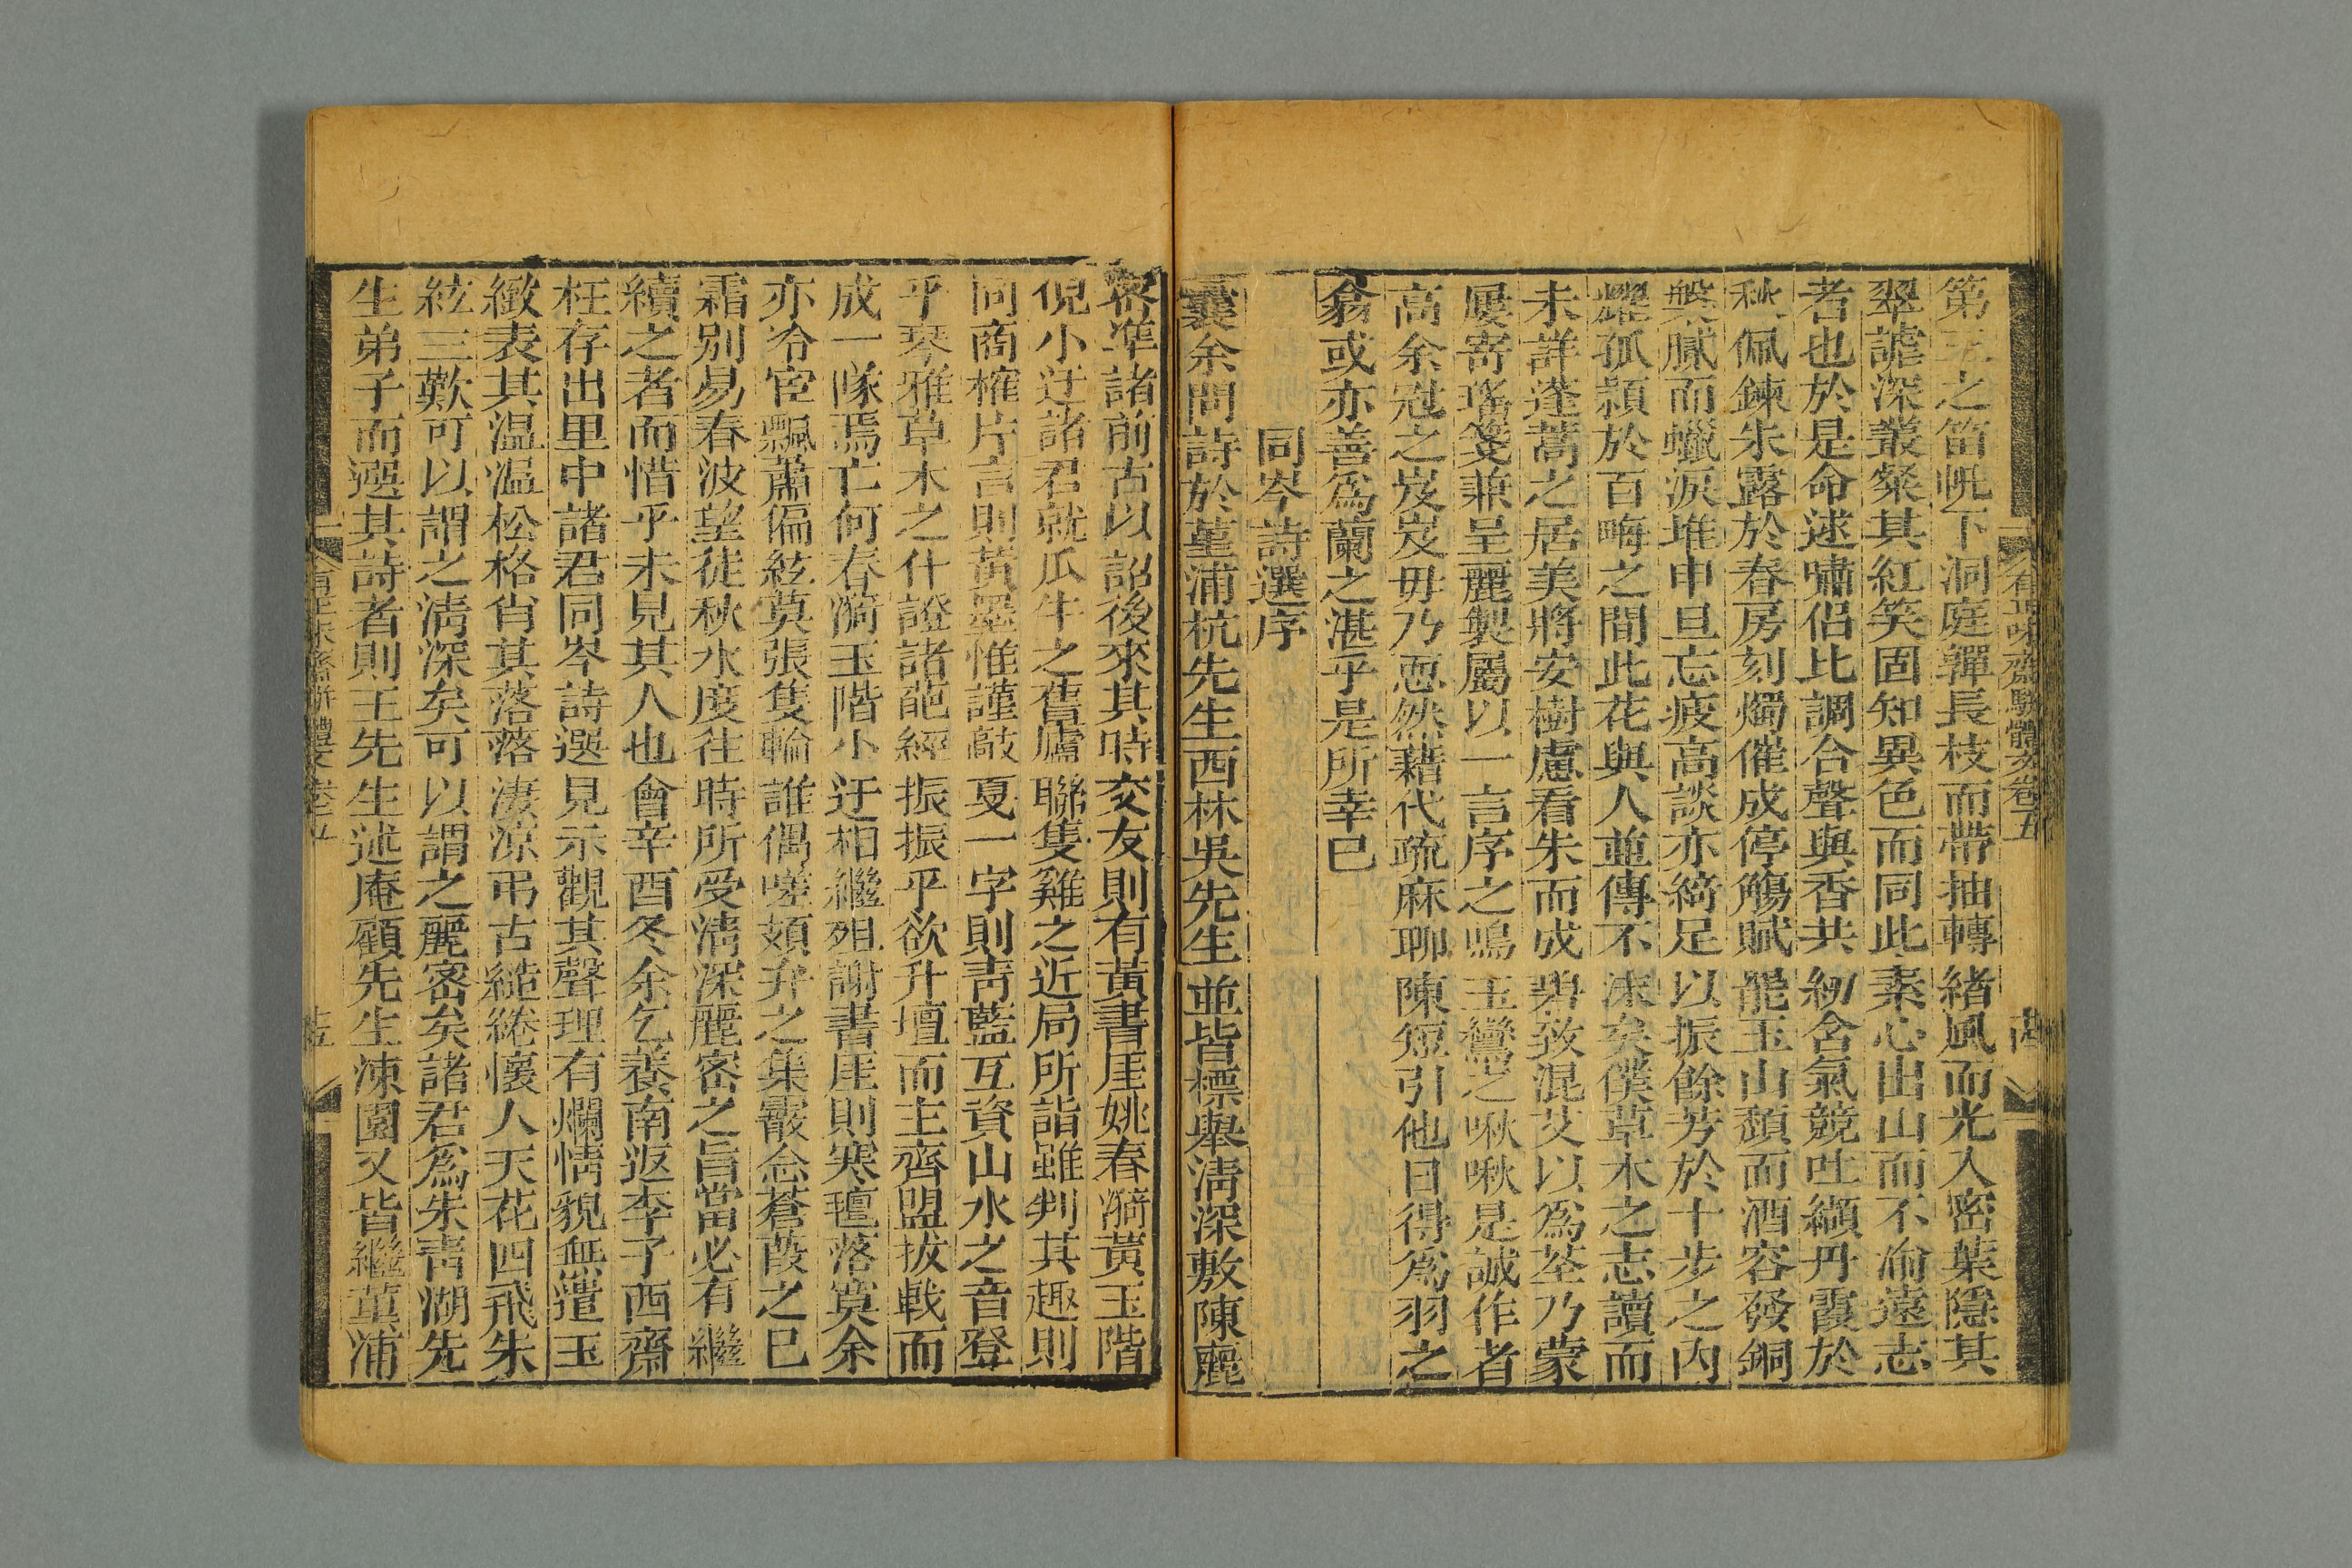 有正味齋駢體文卷五
第三之笛恍下洞庭嚲長枝而帶抽轉緒風而光入密葉隱其
翠謔深叢粲其紅笑固知異色而同此素心出山而不渝遠志
者也於是命逑嘯侶比調合聲與香共紉含氣競吐纈丹霞於
秋佩鍊朱露於春房刻燭催成停觴賦能玉山頹而酒容發銅
槃膩而蠟淚堆申旦忘疲高談亦綺足以振餘芳於十步之內
耀孤穎於百晦之間此花與人並傳不沫矣僕草木之志讀而
未詳蓬蒿之居美將安樹慮看朱而成碧致混艾以為荃乃蒙
屢寄瑤箋兼呈麗製屬以一言序之鳴玉鸞之啾啾是誠作者
高余冠之岌岌毋乃恧然藉代疏麻聊陳短引他日得為羽之
翁或亦善為蘭之湛乎是所幸已
同岑詩選序
曩余問詩於堇浦杭先生西林吳先生並皆標舉清深敷陳麗
密準諸前古以詔後來其時交友則有黃書厓姚春漪黃玉階
倪小迂諸君就瓜牛之舊廬聯隻雞之近局所詣雖判其趣則
同商榷片言則黃墨惟謹敲戛一字則青藍互資山水之音登
乎琴雅草木之什證諸葩經振振乎欲升壇而主齊盟拔戟而
成一隊焉亡何春漪玉階小迂相繼殂謝書厓則寒氊落寞余
亦冷宦飄蕭偏絃莫張隻輪誰偶嗟頍弁之集霰念蒼葭之已
霜別易春波望徒秋水度往時所受清深麗密之旨當必有繼
續之者而惜乎未見其人也會辛酉冬余乞養南返李子西齋
枉存出里中諸君同岑詩選見示觀其聲理有爛情貌無遣玉
緻表其温温松格肖其落落淒涼弔古繾綣懷人天花四飛朱
絃三歎可以謂之淸深矣可以謂之麗密矣諸君為朱靑湖先
生弟子而選其詩者則王先生述庵顧先生涑園又皆繼堇浦